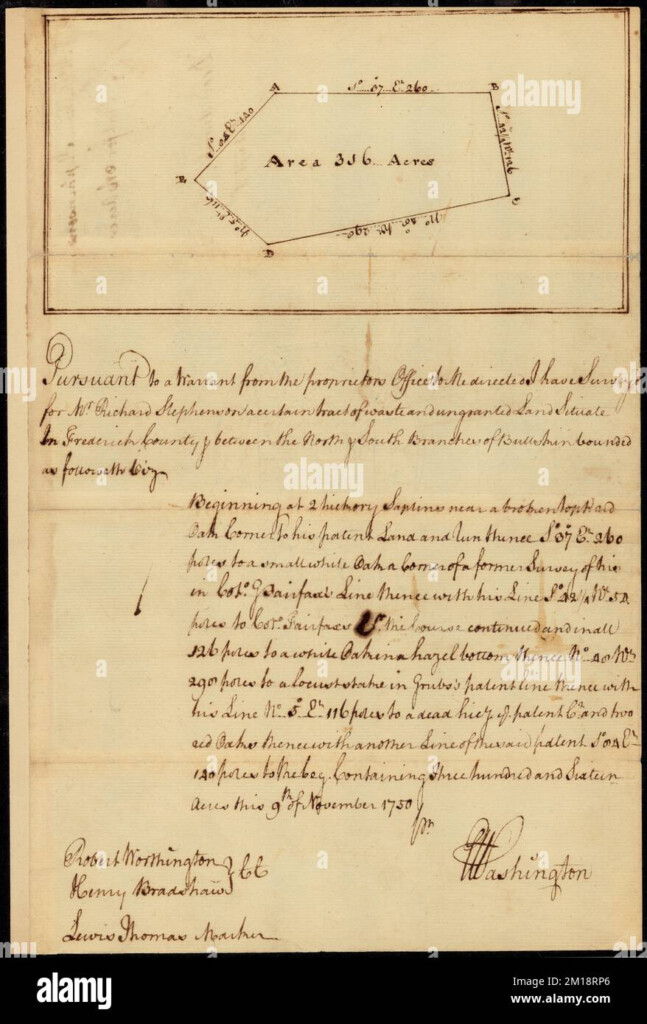 A
So 37 Et 260
B
So 42¼ Wt 126
C
No 40 Wt 290
D
No 5 Et 116
E
So 84 Et 140
Area 316 Acres
Pursuant to a Warrant from the proprietors Office to Me directed I have Surveyd
for Mr Richard Stephenson a certain tract of waste and ungranted Land Situate
In Frederick County & between the North & South Branches of Bullskin bounded
as followeth Viz
Beginning at 2 hickory Saplins near a broken topt red
Oak Corner to his patent Land and run thence So 37 Et 260
poles to a small white Oak a Corner of a former Survey of his
in Colo G Fairfax's Line thence with his Line So 42¼ Wt 54
poles to Colo Fairfax's the Course continued and in all
126 poles to a white Oak in a hazel bottom thence No 40 Wt
290 poles to a locust stake in Grubs's patent line thence with
his Line No 5 Et 116 poles to a dead hicy & patent Cr and two
red Oaks thence with another Line of the said patent So 84 Et
140 poles to the beg. Containing three hundred and Sixteen
Acres this 9th of November 1750
Robert Worthington
Henry Bradshaw } CC
Lewis Thomas Marker
Washington
alamy
a
alamy
Image ID: 2M18RP6
www.alamy.com